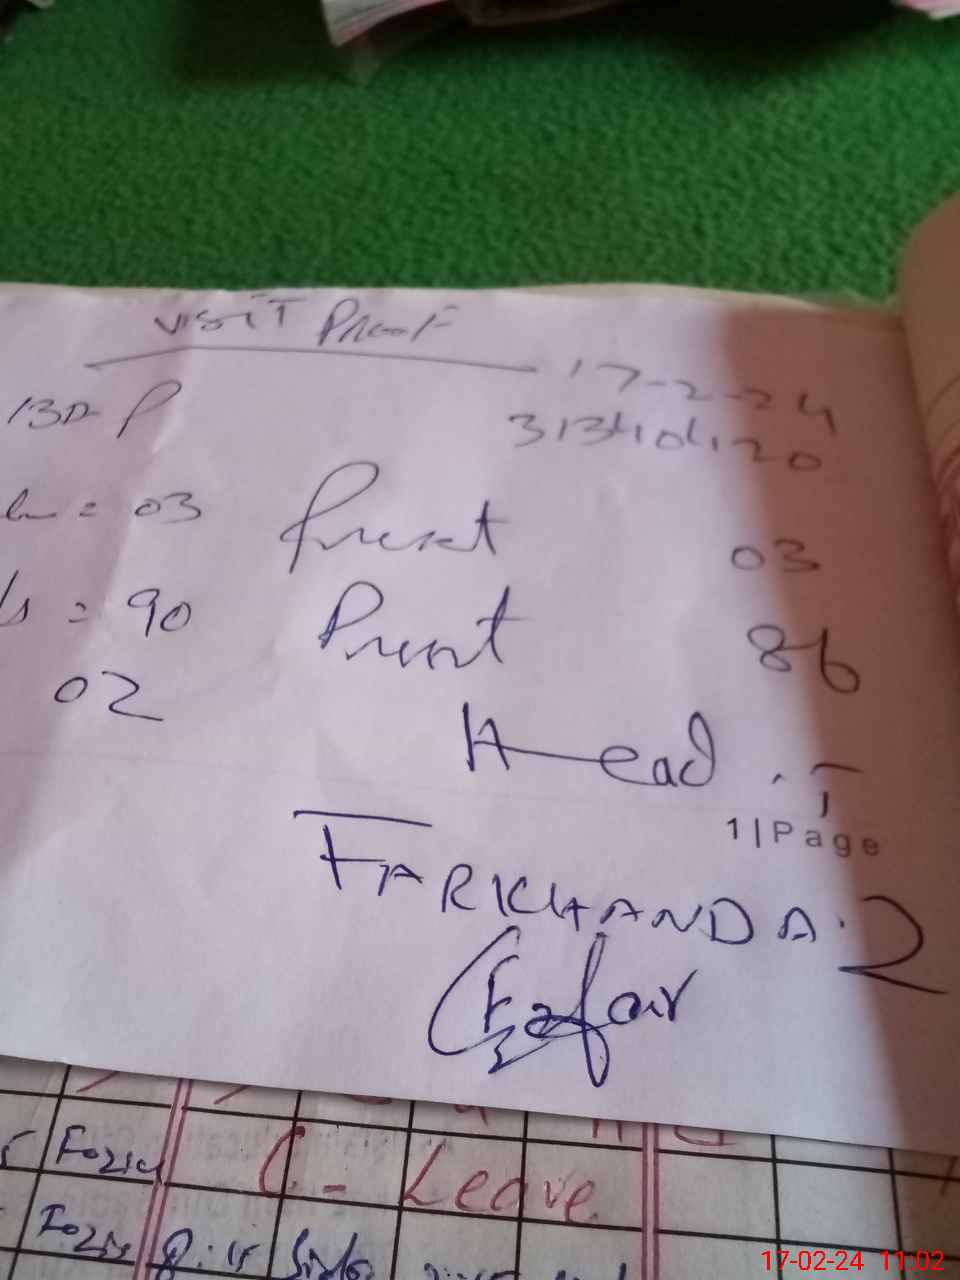 VISIT Proof
17-2-24
13D-P
31340420
= 03 Present 03
= 90 Present 86
02
Head .T
1|Page
FARKHANDA.Z
Zafar
Fozia C - Leave
Fozia
17-02-24 11:02